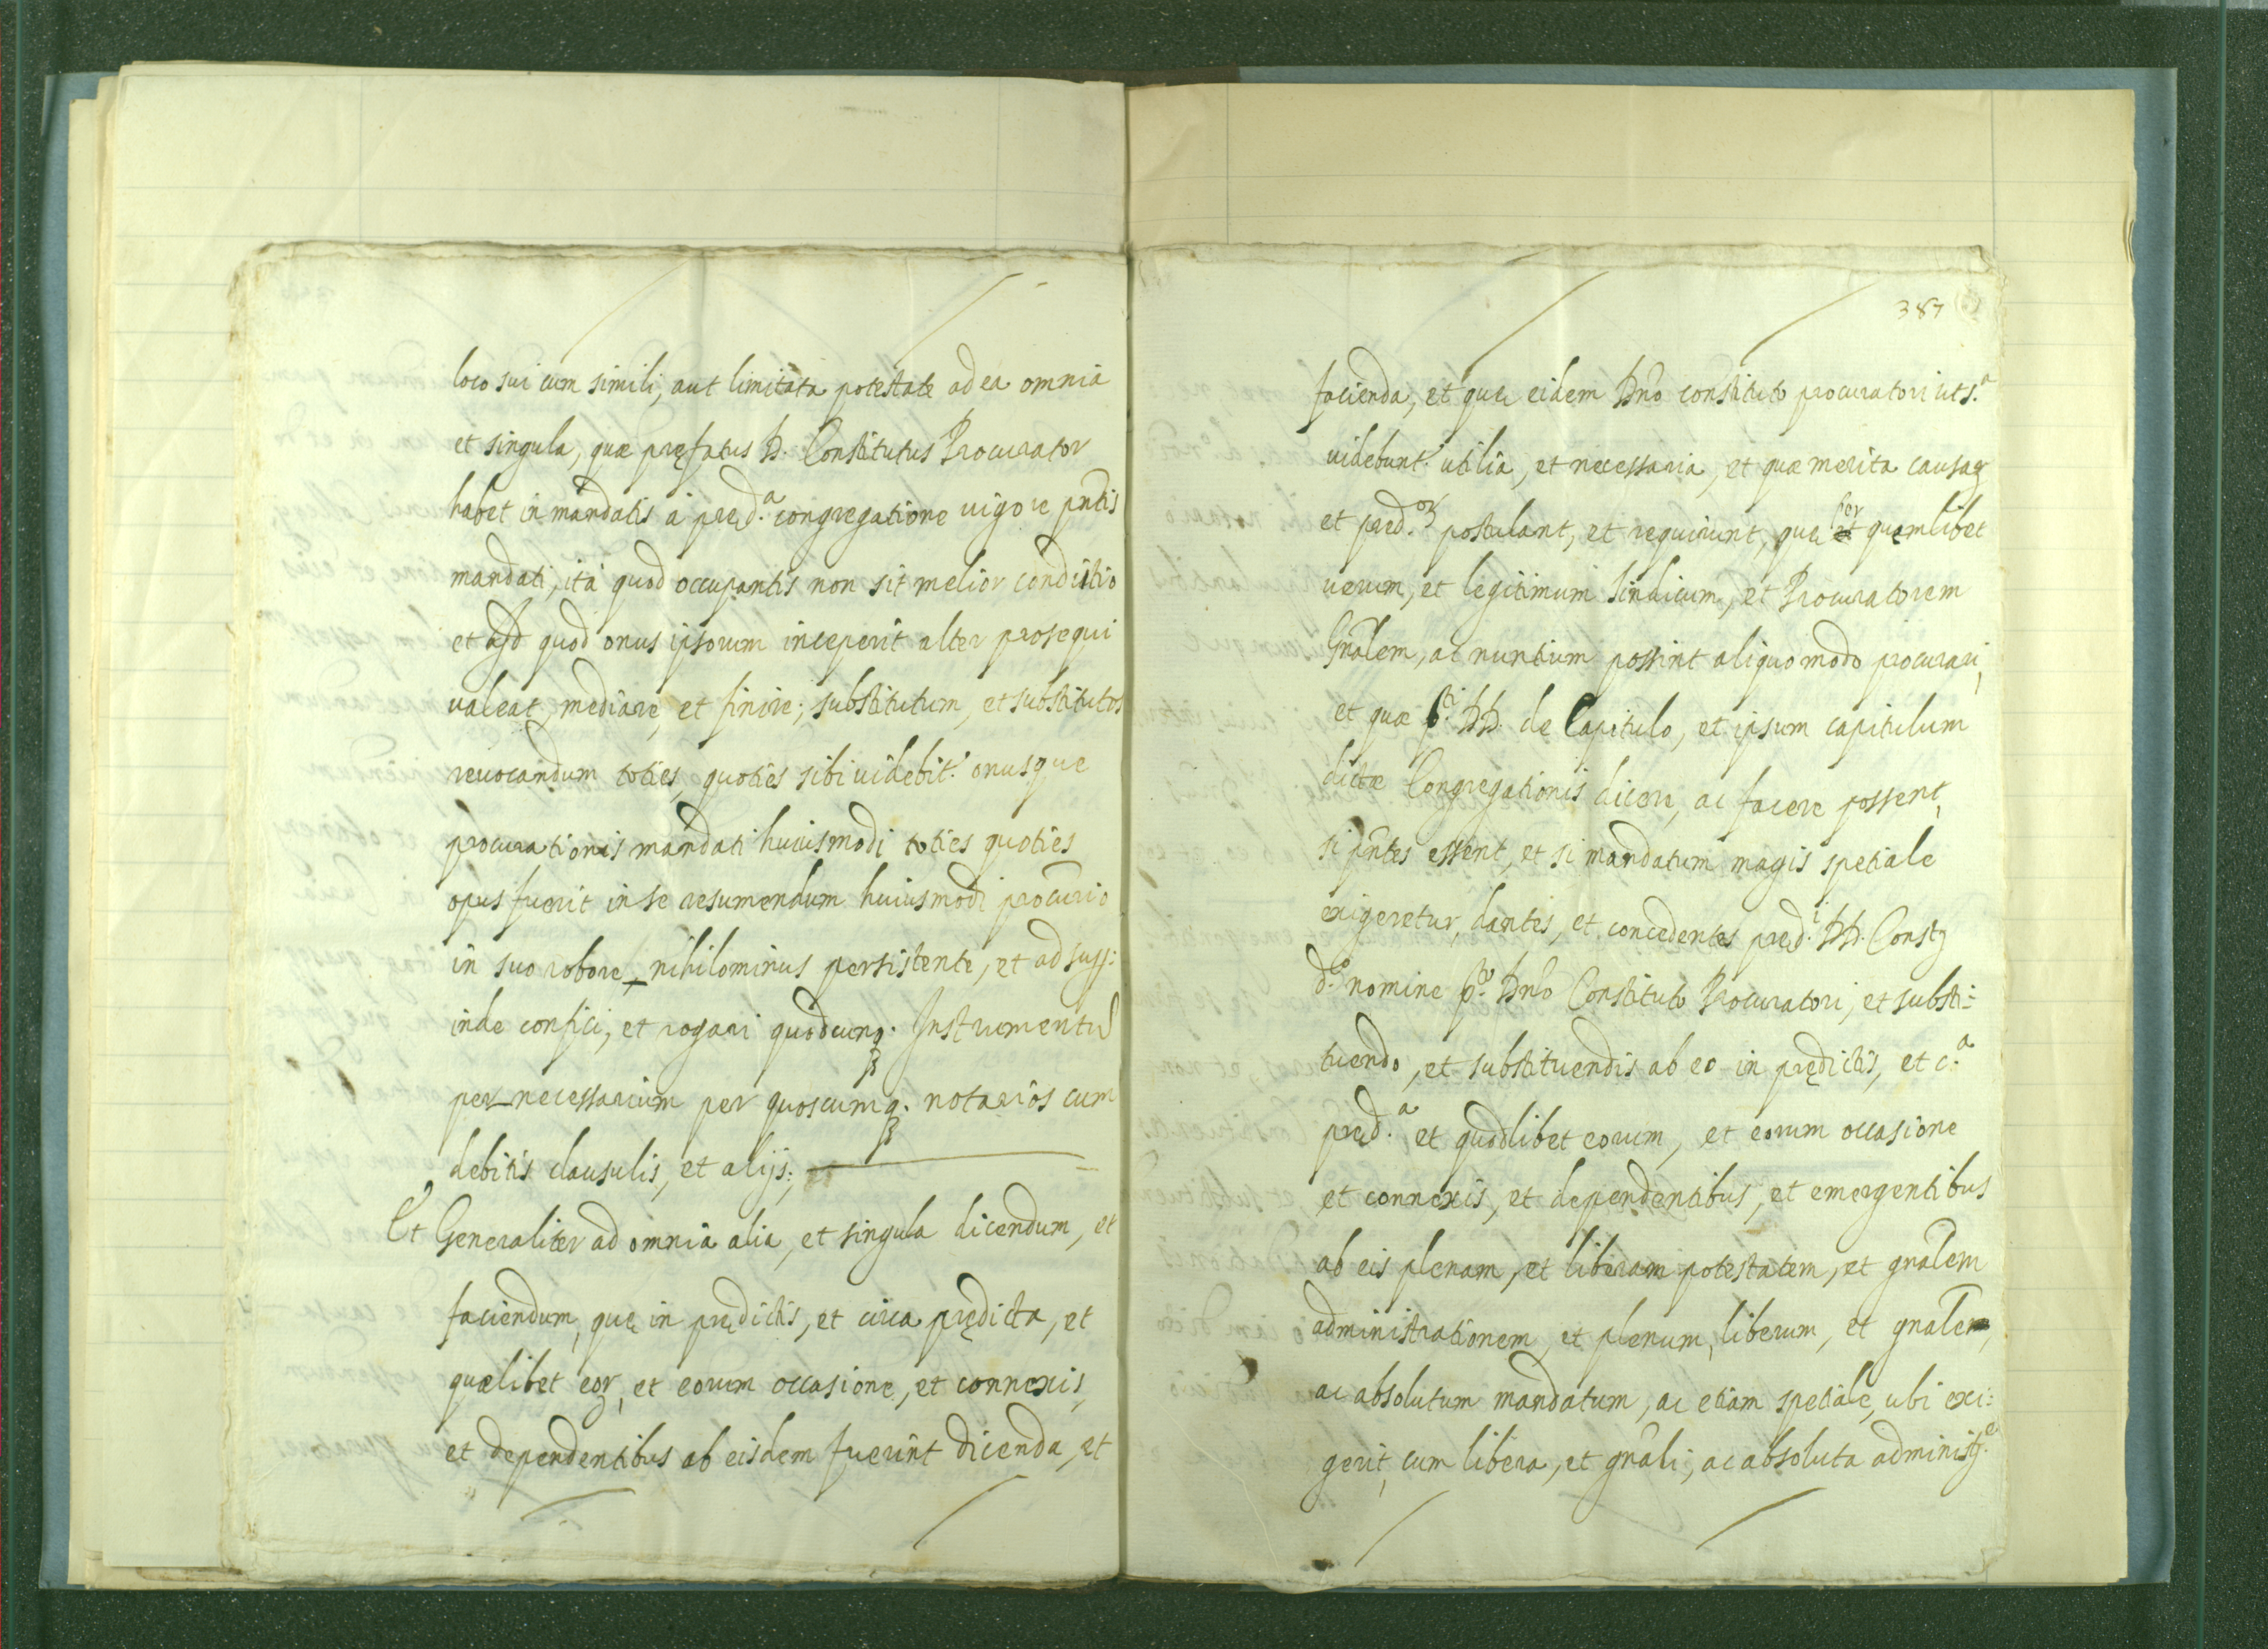 loco sui cum simili, aut limitata potestate ad ea omnia
et singula, quæ pręfatus D. Constitutus Procurator
habet in mandatis à pręd.ª congregatione uigore pn̄tis
mandati, ità quod occupantis non sit melior conditio
et quod onus ipsorum inceperit alter prosequi
ualeat, mediare, et finire; substitutum, et substitutos
reuocandum toties, quoties sibi uidebit.ʳ onusque
procurationis mandati huiusmodi toties quoties
opus fuerit in se resumendum huiusmodi procur.io
in suo robore nihilominus persistente, et ad
inde confici, et rogari quodcunq. Instrumentu
per necessarium per quoscumq. notarios cum
debitis clausulis, et alijs;
Et Generaliter ad omnia alia, et singula dicendum, et
faciendum, quę in prędictis, et circa prędicta, et
quælibet eor, et eorum occasione, et connexis,
et dependentibus ab eisdem fuerint dicenda, et
387
facienda, et quę eidem Dn̄o constituto procuratori ut s.ª
uidebunt.ʳ utilia, et necessaria, et quæ merita causaꝝ
et pręd.oꝝ postulant, et requirunt, quę per quemlibet
uerum, et legitimum Sindicum, et Procuratorem
Gn̄alem, ac nuntium possint aliquo modo procurari,
et quæ p.ti DD. de Capitulo, et ipsum capitulum
dictæ Congregationis dicere, ac facere possent,
si pn̄tes essent, et si mandatum magis spetiale
exigeretur, dantes, et concedentes pręd.i DD. Constꝫ
d.o nomine p.to Dn̄o Constituto Procuratori, et substi:
tuendo, et substituendis ab eo in prędictis, et c.ª
pręd.ª et quodlibet eorum, et eorum occasione
et connexis, et dependentibus, et emergentibus
ab eis plenam, et liberam potestatem, et gn̄alem
administrationem, et plenum, liberum, et gn̄alem,
ac absolutum mandatum, ac etiam spetiale, ubi exi:
gerit, cum libera, et gn̄ali, ac absoluta administ.e